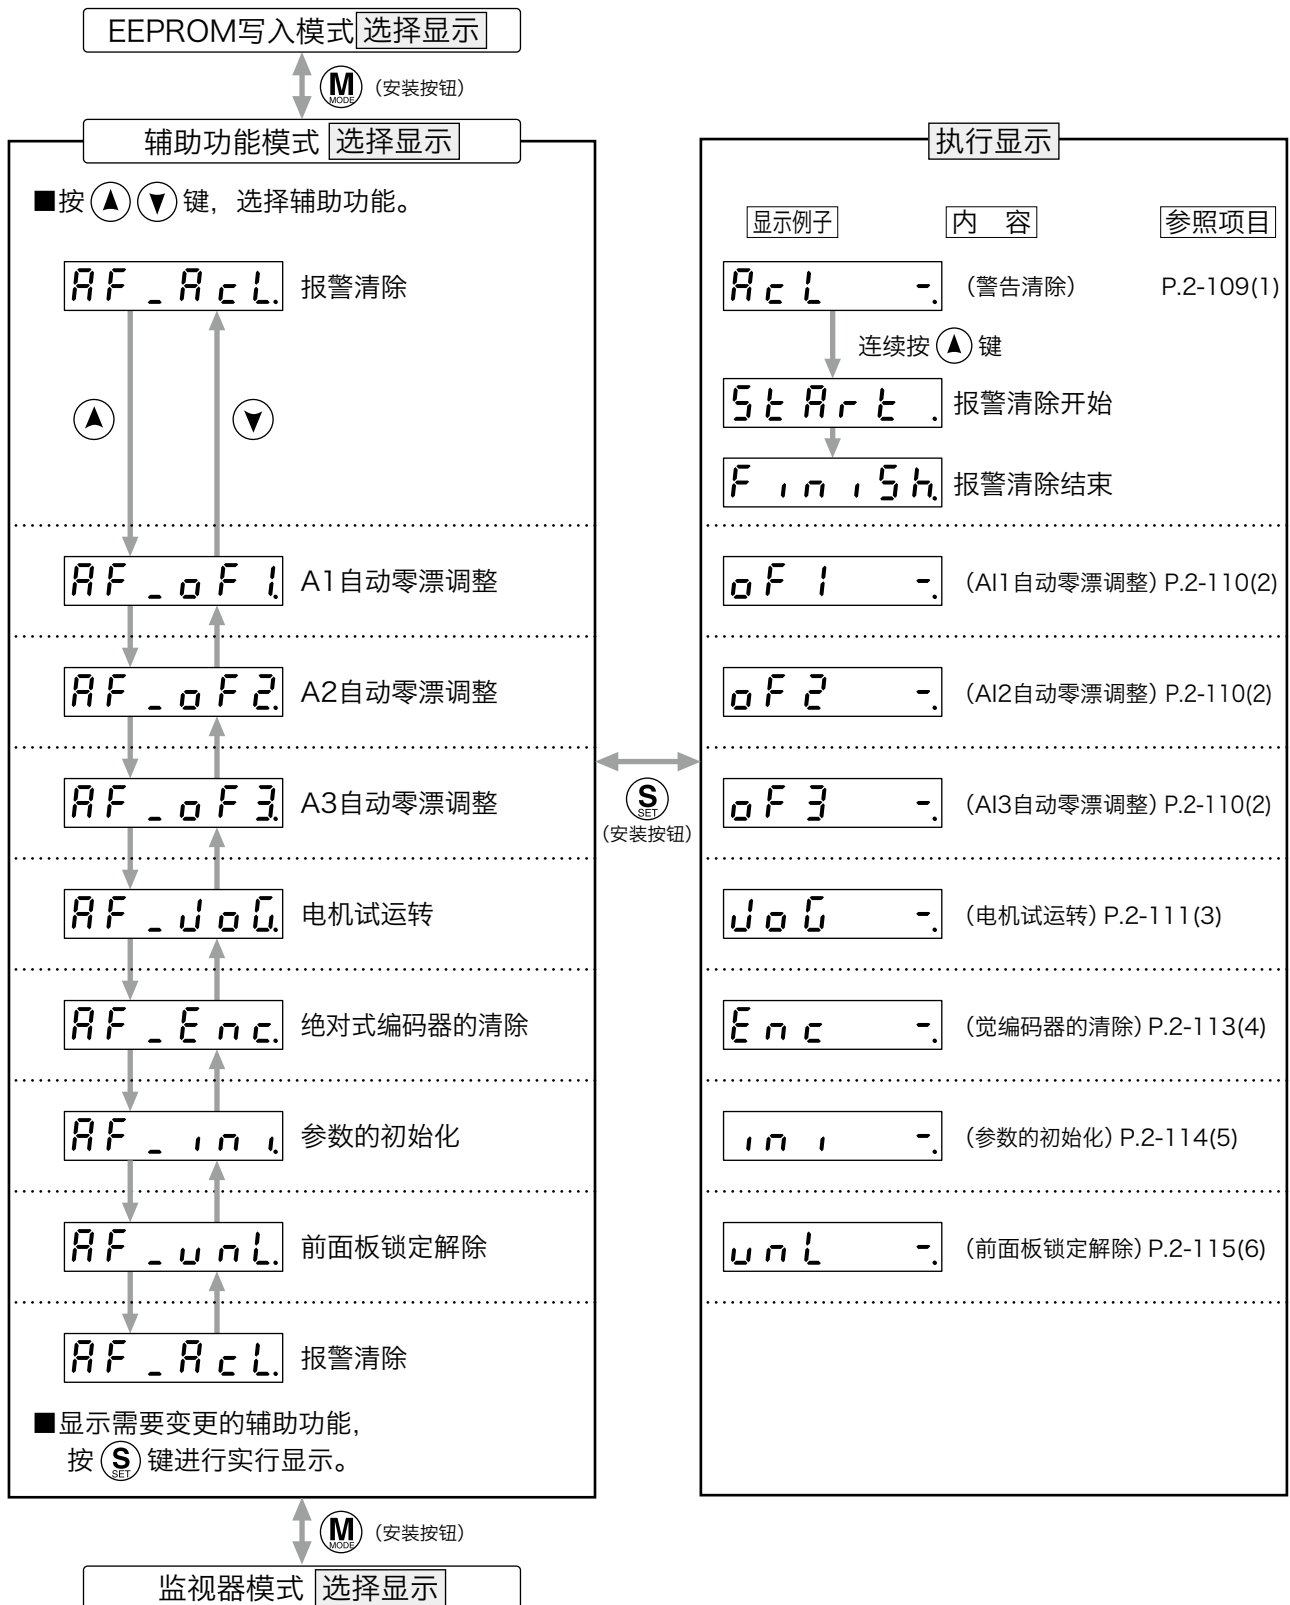 EEPROM写入模式 选择显示
M MODE （安装按钮）
辅助功能模式 选择显示
■按 键，选择辅助功能。
AF_AcL. 报警清除
AF_oF1. A1自动零漂调整
AF_oF2. A2自动零漂调整
AF_oF3. A3自动零漂调整
AF_JoG. 电机试运转
AF_Enc. 绝对式编码器的清除
AF_ini. 参数的初始化
AF_unL. 前面板锁定解除
AF_AcL. 报警清除
■显示需要变更的辅助功能，
按 S SET 键进行实行显示。
S SET
（安装按钮）
执行显示
显示例子 内 容 参照项目
AcL -. （警告清除） P.2-109(1)
连续按 键
StArt . 报警清除开始
FiniSh. 报警清除结束
oF1 -. （AI1自动零漂调整）P.2-110(2)
oF2 -. （AI2自动零漂调整）P.2-110(2)
oF3 -. （AI3自动零漂调整）P.2-110(2)
JoG -. （电机试运转）P.2-111(3)
Enc -. （觉编码器的清除）P.2-113(4)
ini -. （参数的初始化）P.2-114(5)
unL -. （前面板锁定解除）P.2-115(6)
M MODE （安装按钮）
监视器模式 选择显示